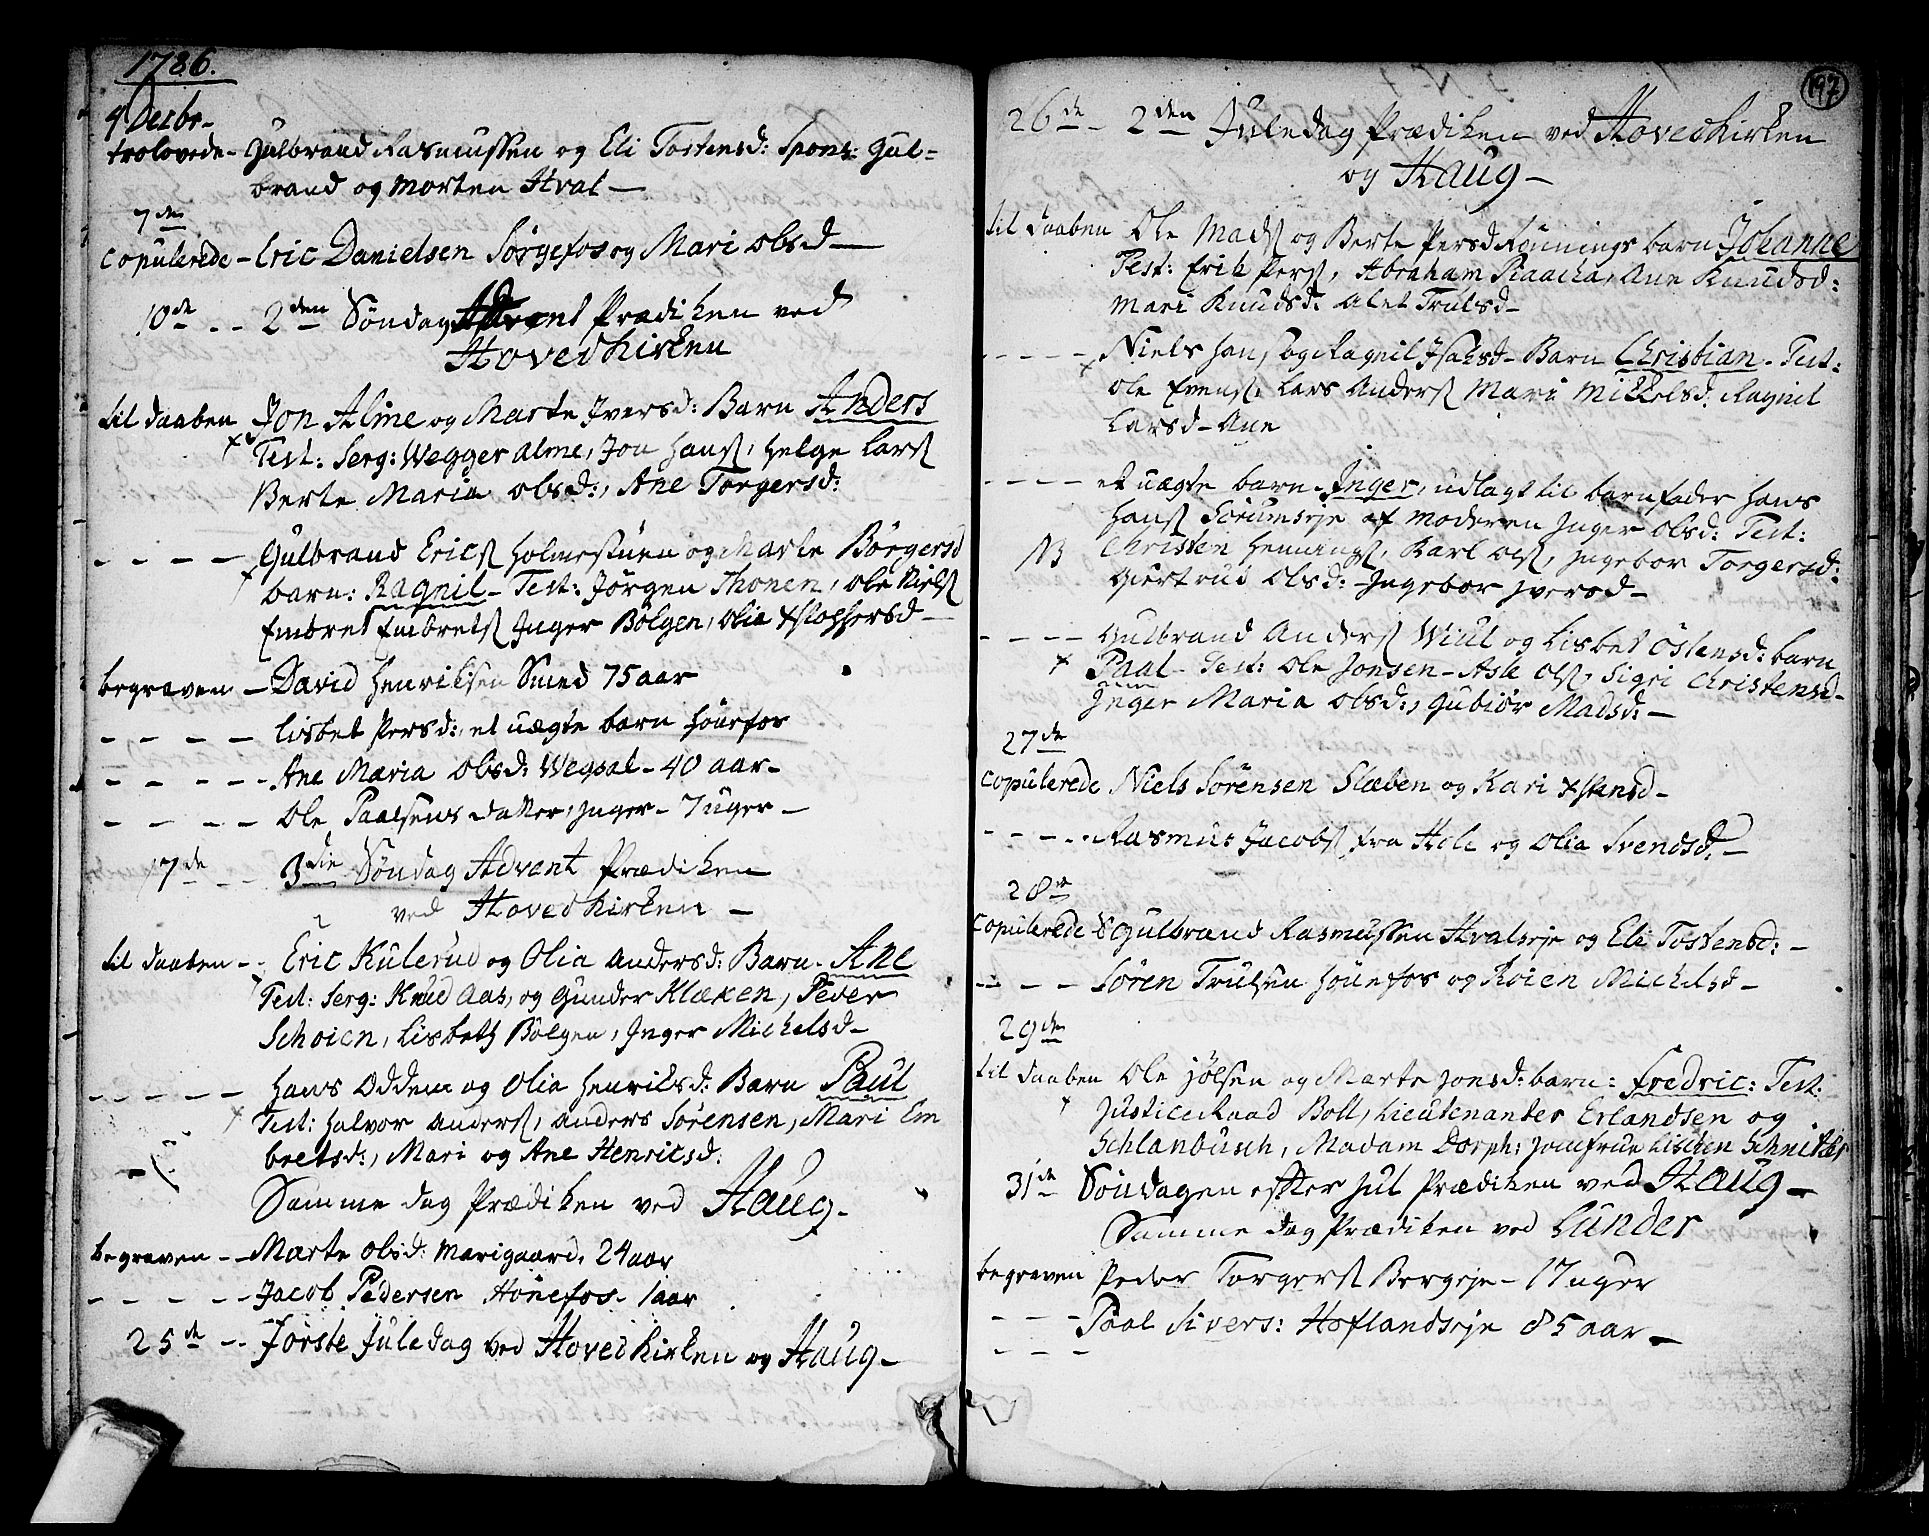 1786.
4 Decbr.
trolovede - Gulbrand Rasmussen og Eli Tostensd: Spons: Gul=
brand og Morten Hval —
7den
copulerede - Eric Danielsen Sörgefos og Mari Olsd —
10de - - 2den Söndag Advent Prædiken ved
Hovedkirken
til daaben Jon Alme og Marte Iversd: Barn Anders
Test: Serg: Wegger Alme, Jon Hans, Helge Lars
Berte Maria Olsd:, Ane Torgersd:
- - - - Gulbrand Erics Holmestuen og Marte Börgersd
barn: Ragnil - Test: Jörgen Thonen, Ole Niels
Embret Embrets Inger Bölgen, Olia Xstophersd -
begraven - David Henriksen Smed 75 aar
- - - - Lisbet Persd:, et uægte barn Hönefos
- - - - - Ane Maria Olsd: Wegsal - 40 aar -
- - - - Ole Paalsens datter, Inger - 7 uger -
17de - - 3die Söndag Advent Prædiken
ved Hovedkirken -
til daaben - - Eric Kulerud og Olia Andersd: Barn - Ane
Test: Serg: Knud Aas, og Gunder Klæken, Peder
Schoien, Lisbeth Bölgen, Inger Michelsd -
- - - - - Hans Oddem og Olia Henriksd: Barn Paul
Test: Halvor Anders, Anders Sörensen, Mari Em
bretsd:, Mari og Ane Henricsd:
Samme dag Prædiken ved Haug -
begraven - Marte Olsd: Marigaard, 24 aar
- - - - - Jacob Pedersen Hönefos - 1 aar
25de - - Förste Juledag ved Hovedkirken og Haug -
197
26de - 2den Juledag Prædiken ved Hovedkirken
og Haug -
til daaben Ole Mads og Berte Persd Rönnings barn Johanne
Test: Erik Pers, Abraham Piaacka, Ane Knudsd:
Mari Knudsd: Alet Trulsd -
- - - - Niels Hans og Ragnil Isaksd - Barn Christian - Test:
Ole Evens, Lars Anders Mari Mikkelsd: Ragnil
Larsd - Ane
- - - - et uægte barn - Inger, udlagt til barnfader Hans
Hans Sörumseje af Moderen Inger Olsd: Test:
NB Christen Hennings, Karl Ols, Ingebor Torgersd:
Giertrud Olsd: Ingebor Iversd -
- - - - Gulbrand Anders Wiul og Lisbet Östensd: barn
Paal - Test: Ole Jonsen - Asle Ols, Sigri Christensd -
Inger Maria Olsd:, Gubiör Madsd: -
27de
copulerede Niels Sörensen Slæben og Kari Xstensd -
- - - - Rasmus Jacobs fra Hole og Olia Svendsd: -
28de
copulerede Gulbrand Rasmussen Hvalseje og Eli Tostensd: -
- - - Sören Trulsen Hönefos og Roien Michelsd -
29de
til daaben Ole Jölsen og Marte Jonsd: barn: Fredric: Test:
Justice Raad Boll, Lieutenanter Erlandsen og
Schlanbusch, Madam Dorph: Jomfrue Lischen Schnitler
31de Söndagen efter Jul Prædiken ved Haug -
Samme dag Prædiken ved Lunder
begraven Peder Torgers Bergeje - 17 uger
- - - Paal Sivers: Hoflandseje 85 aar -
- - -